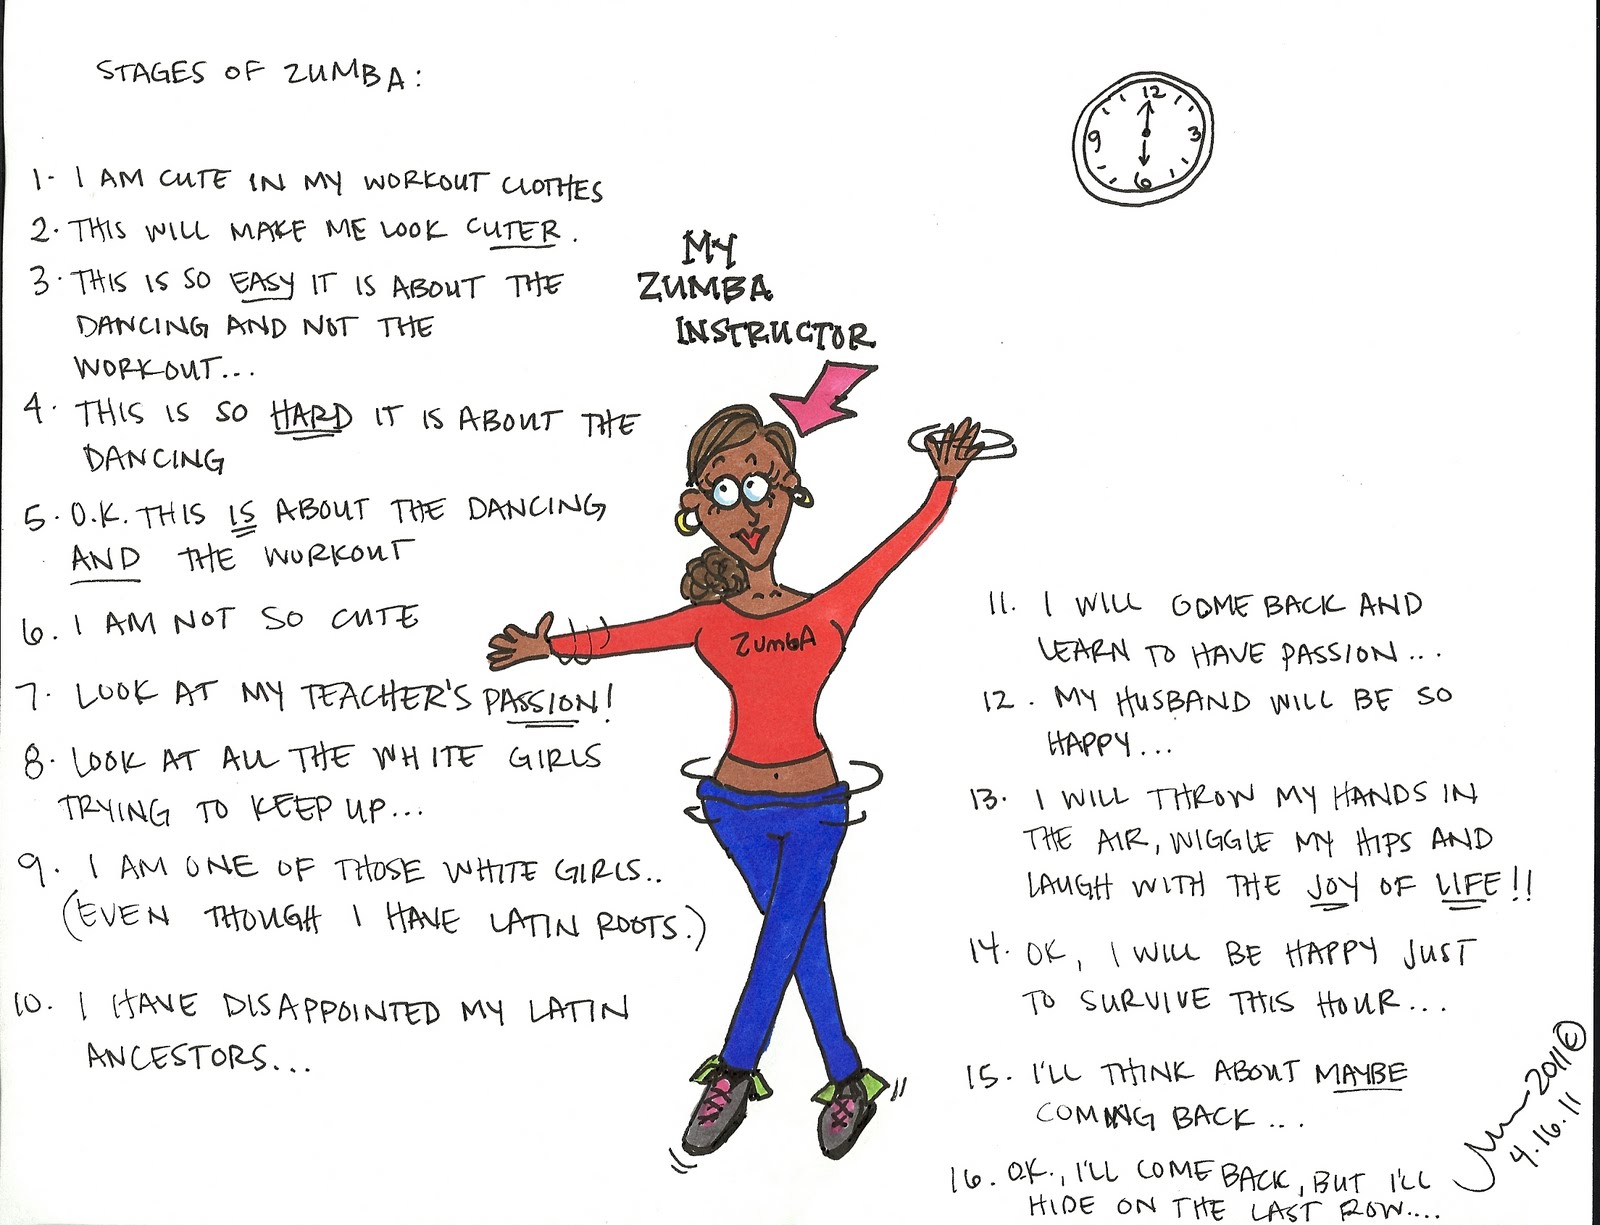 STAGES OF ZUMBA:
1. I AM CUTE IN MY WORKOUT CLOTHES
2. THIS WILL MAKE ME LOOK CUTER.
3. THIS IS SO EASY IT IS ABOUT THE
DANCING AND NOT THE
WORKOUT...
4. THIS IS SO HARD IT IS ABOUT THE
DANCING
5. O.K. THIS IS ABOUT THE DANCING
AND THE WORKOUT
6. I AM NOT SO CUTE
7. LOOK AT MY TEACHER'S PASSION!
8. LOOK AT ALL THE WHITE GIRLS
TRYING TO KEEP UP...
9. I AM ONE OF THOSE WHITE GIRLS..
(EVEN THOUGH I HAVE LATIN ROOTS.)
10. I HAVE DISAPPOINTED MY LATIN
ANCESTORS...
MY
ZUMBA
INSTRUCTOR
ZumbA
12
9 3
6
11. I WILL COME BACK AND
LEARN TO HAVE PASSION...
12. MY HUSBAND WILL BE SO
HAPPY...
13. I WILL THROW MY HANDS IN
THE AIR, WIGGLE MY HIPS AND
LAUGH WITH THE JOY OF LIFE!!
14. OK, I WILL BE HAPPY JUST
TO SURVIVE THIS HOUR...
15. I'LL THINK ABOUT MAYBE
COMING BACK...
16. O.K., I'LL COME BACK, BUT I'LL
HIDE ON THE LAST ROW....
2011©
4.16.11